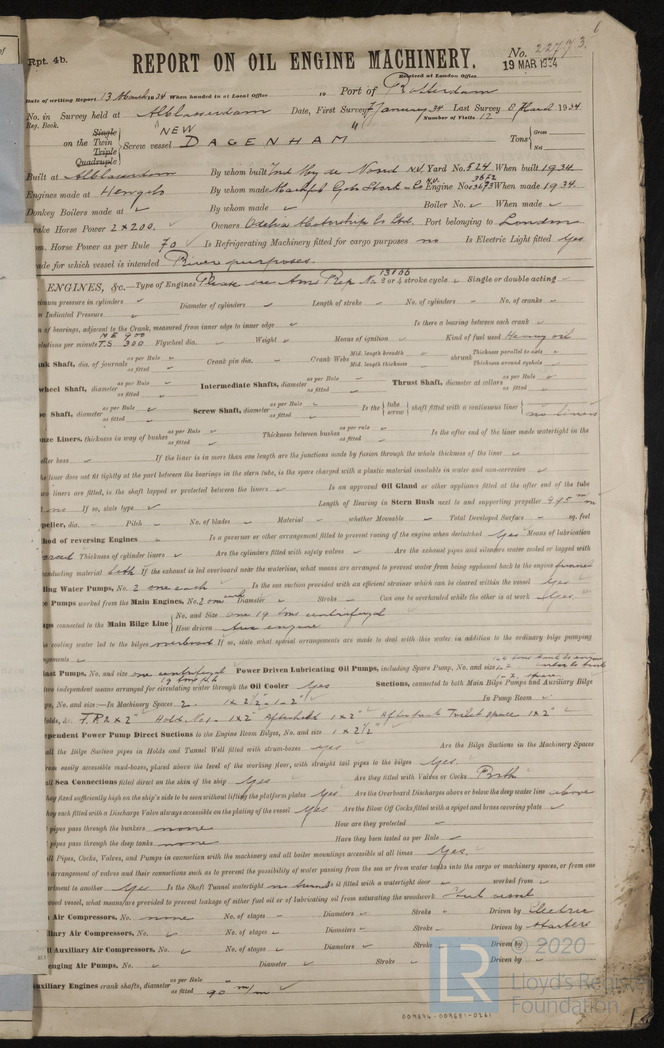 6
Rpt. 4b.
REPORT ON OIL ENGINE MACHINERY.
No. 22773.
19 MAR 1934
Received at London Office
Date of writing Report 13 March 1934 When handed in at Local Office 10 Port of Rotterdam
No. in Survey held at Alblasserdam Date, First Survey 7 January 34 Last Survey 8 March 1934
Reg. Book. Number of Visits 12
Single
on the Twin
Triple
Quadruple
Screw vessel NEW "DAGENHAM"
Tons Gross
Net
Built at Alblasserdam By whom built Yard No. 524 When built 1934
Engines made at Hengelo By whom made Engine No. When made 1934.
Donkey Boilers made at ✓ By whom made ✓ Boiler No. ✓ When made ✓
Brake Horse Power 2 x 200. Owners Motorship Co Ltd. Port belonging to London
om. Horse Power as per Rule 70 Is Refrigerating Machinery fitted for cargo purposes no Is Electric Light fitted Yes
ade for which vessel is intended River purposes.
ENGINES, &c.—Type of Engines Please see Ams Rep No. 13106 2 or 4 stroke cycle Single or double acting
ximum pressure in cylinders Diameter of cylinders Length of stroke No. of cylinders No. of cranks
n Indicated Pressure
n of bearings, adjacent to the Crank, measured from inner edge to inner edge Is there a bearing between each crank
olutions per minute M.E. 900 T.S. 300 Flywheel dia. Weight Means of ignition Kind of fuel used Heavy oil
nk Shaft, dia. of journals as per Rule as fitted Crank pin dia. Crank Webs Mid. length breadth Mid. length thickness shrunk Thickness parallel to axis Thickness around eyehole
wheel Shaft, diameter as per Rule as fitted Intermediate Shafts, diameter as per Rule as fitted Thrust Shaft, diameter at collars as per Rule as fitted
be Shaft, diameter as per Rule as fitted Screw Shaft, diameter as per Rule as fitted Is the tube screw shaft fitted with a continuous liner no liners
nze Liners, thickness in way of bushes as per Rule as fitted Thickness between bushes as per rule as fitted Is the after end of the liner made watertight in the
eller boss If the liner is in more than one length are the junctions made by fusion through the whole thickness of the liner
he liner does not fit tightly at the part between the bearings in the stern tube, is the space charged with a plastic material insoluble in water and non-corrosive
wo liners are fitted, is the shaft lapped or protected between the liners Is an approved Oil Gland or other appliance fitted at the after end of the tube
no If so, state type Length of Bearing in Stern Bush next to and supporting propeller 495 m/m
peller, dia. Pitch No. of blades Material whether Moveable Total Developed Surface sq. feet
hod of reversing Engines Is a governor or other arrangement fitted to prevent racing of the engine when declutched Yes Means of lubrication
orced Thickness of cylinder liners Are the cylinders fitted with safety valves Are the exhaust pipes and silencers water cooled or lagged with
conducting material both If the exhaust is led overboard near the waterline, what means are arranged to prevent water from being syphoned back to the engine funnel
ling Water Pumps, No. 2 one each Is the sea suction provided with an efficient strainer which can be cleared within the vessel Yes
e Pumps worked from the Main Engines, No. 2 one each Diameter Stroke Can one be overhauled while the other is at work Yes.
mps connected to the Main Bilge Line No. and Size one 19 tons centrifugal
How driven Aux engine
he cooling water led to the bilges overboard If so, state what special arrangements are made to deal with this water in addition to the ordinary bilge pumping
ngements
last Pumps, No. and size one centrifugal 19 tons Power Driven Lubricating Oil Pumps, including Spare Pump, No. and size
two independent means arranged for circulating water through the Oil Cooler Yes Suctions, connected to both Main Bilge Pumps and Auxiliary Bilge
ps, No. and size:—In Machinery Spaces 2. 1 x 2½" 1 - 2" In Pump Room
olds, &c. F.P. 2 x 2" Hold No. 1 1 x 2" Afterhold 1 x 2" Afterpeak Toilet space 1 x 2"
ependent Power Pump Direct Suctions to the Engine Room Bilges, No. and size 1 x 2½"
all the Bilge Suction pipes in Holds and Tunnel Well fitted with strum-boxes yes Are the Bilge Suctions in the Machinery Spaces
from easily accessible mud-boxes, placed above the level of the working floor, with straight tail pipes to the bilges Yes.
all Sea Connections fitted direct on the skin of the ship Yes Are they fitted with Valves or Cocks Both
they fixed sufficiently high on the ship's side to be seen without lifting the platform plates Yes Are the Overboard Discharges above or below the deep water line above
they each fitted with a Discharge Valve always accessible on the plating of the vessel Yes Are the Blow Off Cocks fitted with a spigot and brass covering plate
t pipes pass through the bunkers none How are they protected
t pipes pass through the deep tanks none Have they been tested as per Rule
all Pipes, Cocks, Valves, and Pumps in connection with the machinery and all boiler mountings accessible at all times Yes.
e arrangement of valves and their connections such as to prevent the possibility of water passing from the sea or from water tanks into the cargo or machinery spaces, or from one
rtment to another Yes Is the Shaft Tunnel watertight no tunnel Is it fitted with a watertight door worked from
ood vessel, what means are provided to prevent leakage of either fuel oil or of lubricating oil from saturating the woodwork
n Air Compressors, No. none No. of stages Diameters Stroke Driven by Electric
liary Air Compressors, No. No. of stages Diameters Stroke Driven by starters
ll Auxiliary Air Compressors, No. No. of stages Diameters Stroke Driven by
enging Air Pumps, No. Diameter Stroke Driven by
uxiliary Engines crank shafts, diameter as per Rule as fitted 90 m/m
© 2020
LR
Lloyd's Register
Foundation
009694-009681-0261